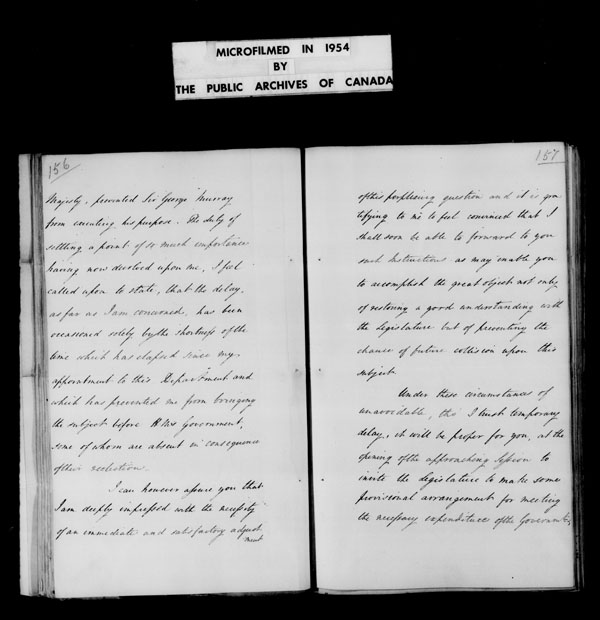 MICROFILMED IN 1954
BY
THE PUBLIC ARCHIVES OF CANADA
156
Majesty, prevented Sir George Murray
from executing his purpose. The duty of
settling a point of so much importance
having now devolved upon me, I feel
called upon to state, that the delay,
as far as I am concerned, has been
occasioned solely by the shortness of the
time which has elapsed since my
appointment to this Department and
which has prevented me from bringing
the subject before H Ms Government,
some of whom are absent in consequence
of their reelection.
I can however assure you that
I am deeply impressed with the necessity
of an immediate and satisfactory adjust
ment
157
of this perplexing question and it is gra
tifying to me to feel convinced that I
shall soon be able to forward to you
such Instructions as may enable you
to accomplish the great object not only
of restoring a good understanding with
the Legislature but of preventing the
chance of future collision upon this
subject.
Under these circumstances of
unavoidable, tho' I trust temporary
delay, it will be proper for you, at the
opening of the approaching Session to
invite the Legislature to make some
provisional arrangement for meeting
the necessary expenditure of the Government,